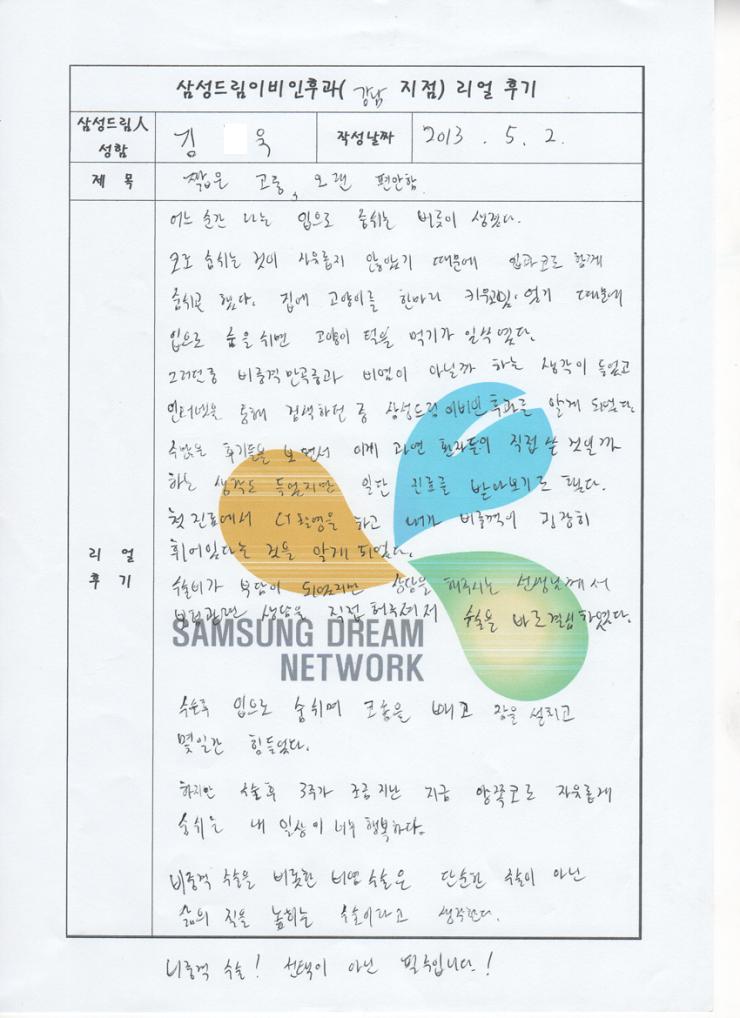 삼성드림이비인후과( 강남 지점) 리얼 후기
삼성드림人 성함
김 욱
작성날짜
2013. 5. 2.
제 목
짧은 고통, 오랜 편안함.
리 얼 후 기
어느 순간 나는 입으로 숨쉬는 버릇이 생겼다.
코로 숨쉬는 것이 자유롭지 않았기 때문에 입과코로 함께
숨쉬곤 했다. 집에 고양이를 한마리 있기 때문에
입으로 숨을 쉬면 고양이 털을 먹기가 일쑤였다.
그러던중 비중격만곡증과 비염이 아닐까 하는 생각이 들었고
인터넷을 통해 검색하던 중 삼성드림이비인후과를 알게 되었다.
수많은 후기들을 보면서 이게 과연 환자들이 직접 쓴 것일까
하는 생각도 들었지만 일단 진료를 받아보기로 했다.
첫 진료에서 CT촬영을 하고 내가 비중격이 굉장히
휘어있다는 것을 알게 되었다.
수술비가 부담이 되었지만 상담을 해주시는 선생님께서
보험관련 상담을 직접 해주셔서 수술을 바로결심하였다.
SAMSUNG DREAM
NETWORK
수술후 입으로 숨쉬며 코솜을 빼고 잠을 설치고
몇일간 힘들었다.
하지만 수술후 3주가 조금 지난 지금 양쪽코로 자유롭게
숨쉬는 내 일상이 너무 행복하다.
비중격 수술을 비롯한 비염 수술은 단순한 수술이 아닌
삶의 질을 높히는 수술이라고 생각한다.
비중격 수술! 선택이 아닌 필수입니다.!